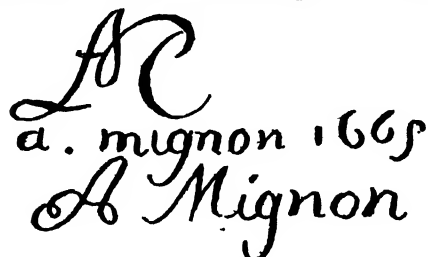 AC
a. mignon 1665
A Mignon